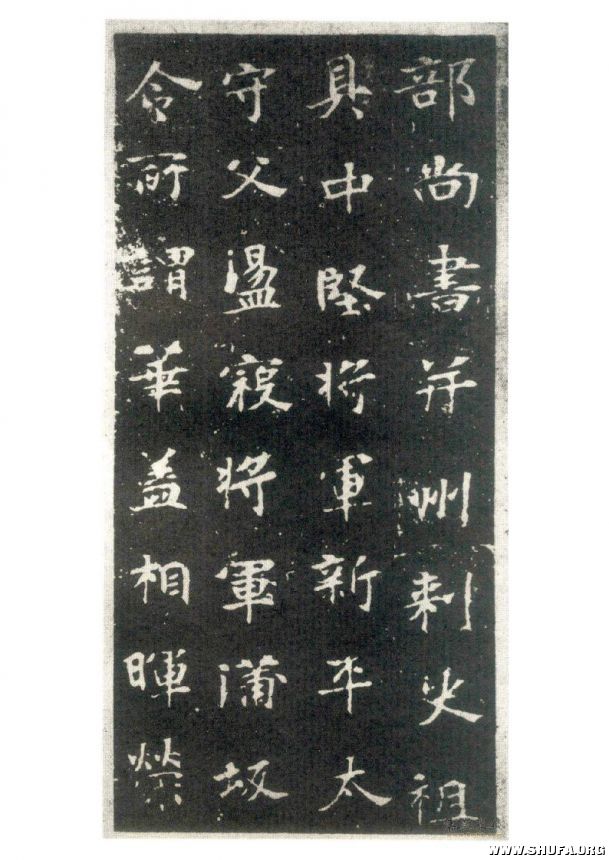 部尚書并州刺史祖
具中堅将軍新平太
守父盪寇将軍蒲坂
令所謂華盖相暉榮
WWW.SHUFA.ORG